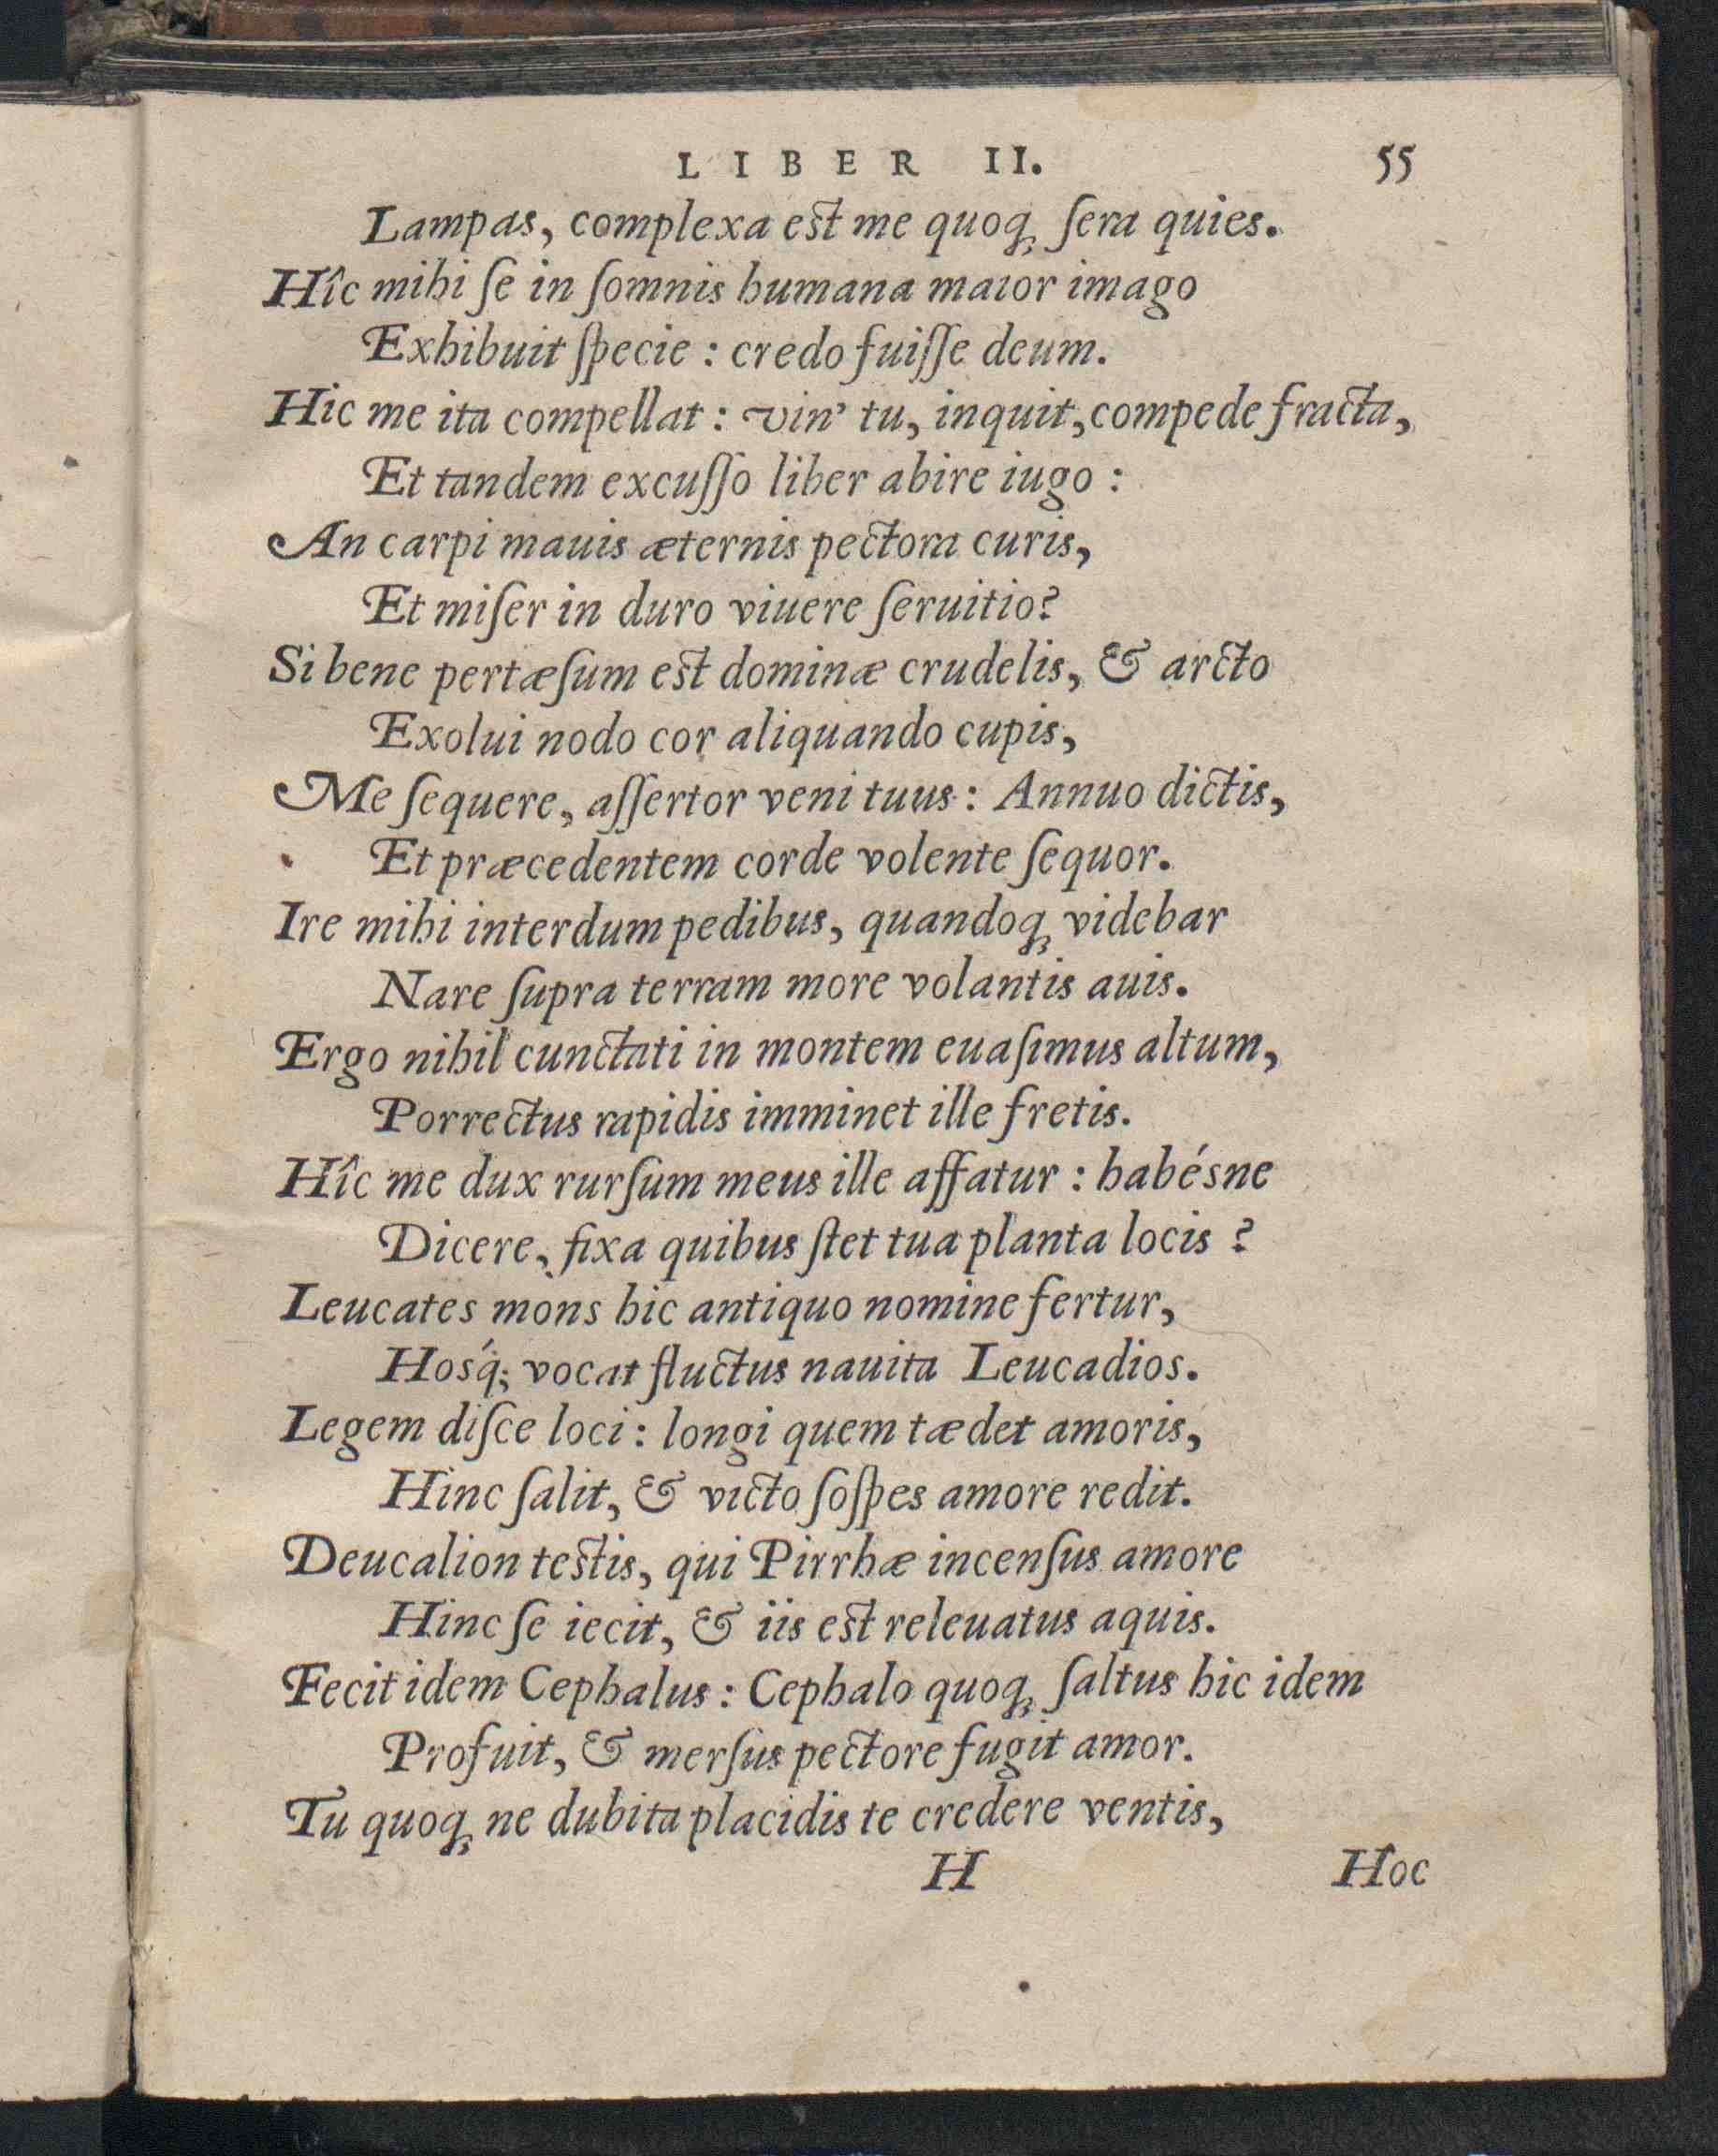 LIBER II. 55
Lampas, complexa est me quoq; ſera quies.
Hîc mihi ſe in ſomnis humana maior imago
Exhibuit ſpecie : credo fuiſſe deum.
Hic me ita compellat : vin' tu, inquit, compede fracta,
Et tandem excuſſo liber abire iugo :
An carpi mauis æternis pectora curis,
Et miſer in duro viuere ſeruitio?
Si bene pertæſum est dominæ crudelis, & arcto
Exolui nodo cor aliquando cupis,
Me ſequere, aſſertor veni tuus : Annuo dictis,
Et præcedentem corde volente ſequor.
Ire mihi interdum pedibus, quandoq; videbar
Nare ſupra terram more volantis auis.
Ergo nihil cunctati in montem euaſimus altum,
Porrectus rapidis imminet ille fretis.
Hîc me dux rurſum meus ille affatur : habésne
Dicere, fixa quibus ſtet tua planta locis ?
Leucates mons hic antiquo nomine fertur,
Hosq́; vocat fluctus nauita Leucadios.
Legem diſce loci : longi quem tædet amoris,
Hinc ſalit, & victo ſoſpes amore redit.
Deucalion testis, qui Pirrhæ incenſus amore
Hinc ſe iecit, & iis est releuatus aquis.
Fecit idem Cephalus : Cephalo quoq; ſaltus hic idem
Profuit, & merſus pectore fugit amor.
Tu quoq; ne dubita placidis te credere ventis,
H Hoc